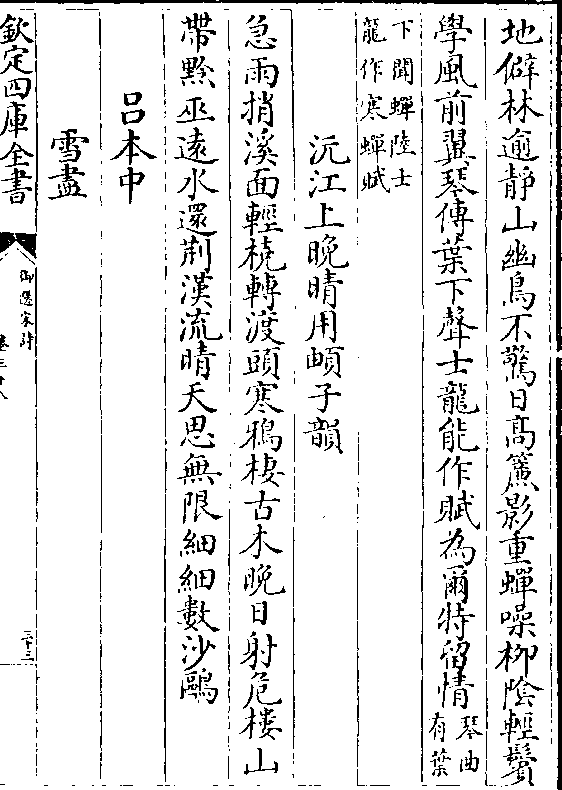 地僻林逾靜山幽鳥不驚日高簾影重蟬噪柳陰輕鬢
學風前翼琴傳葉下聲士龍能作賦為爾特留情琴曲有葉
下聞蟬陸士龍作寒蟬賦
沅江上晚晴用䪼子韻
急雨捎溪面輕橈轉渡頭寒鴉棲古木晚日射危樓山
帶黔巫遠水還荆漢流晴天思無限細細數沙鷗
吕本中
雪盡
欽定四庫全書
御選宋詩
三十三